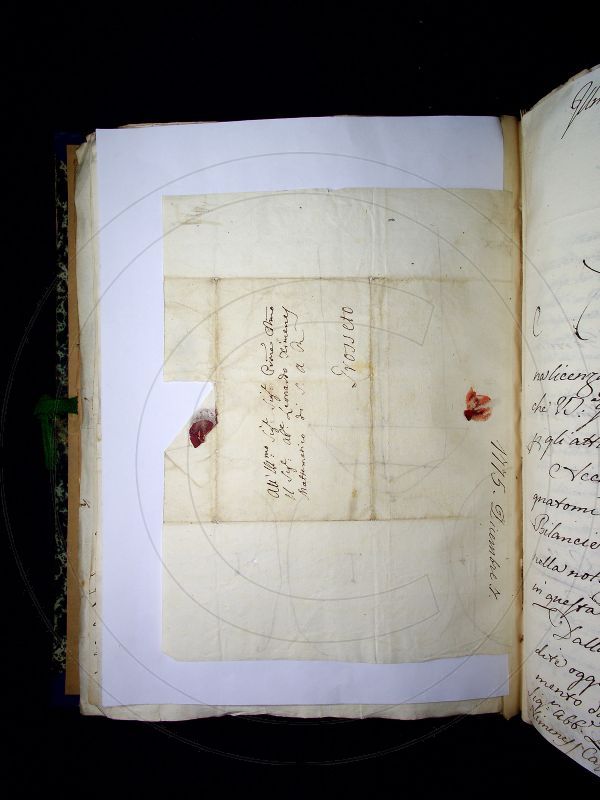 All'Illmo Sigr Sigr Prone Colmo
Il Sigr Abe Leonardo Ximenes
Mattematico di S A R
Grosseto
1775. Dicembre
na licenza
che
gli att
Acce
quatomi
Bilancie
nella not
in questa
Dalla
dite ogg
mento d
Sigr Abb.
Ximenes